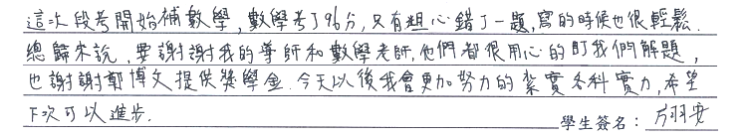 這次段考開始補數學,數學考了96分,只有粗心錯了一題,寫的時候也很輕鬆.
總歸來說,要謝謝我的導師和數學老師,他們都很用心的盯我們解題,
也謝謝鄭博文提供獎學金.今天以後我會更加努力的紮實各科實力,希望
下次可以進步.
學生簽名:方羽安